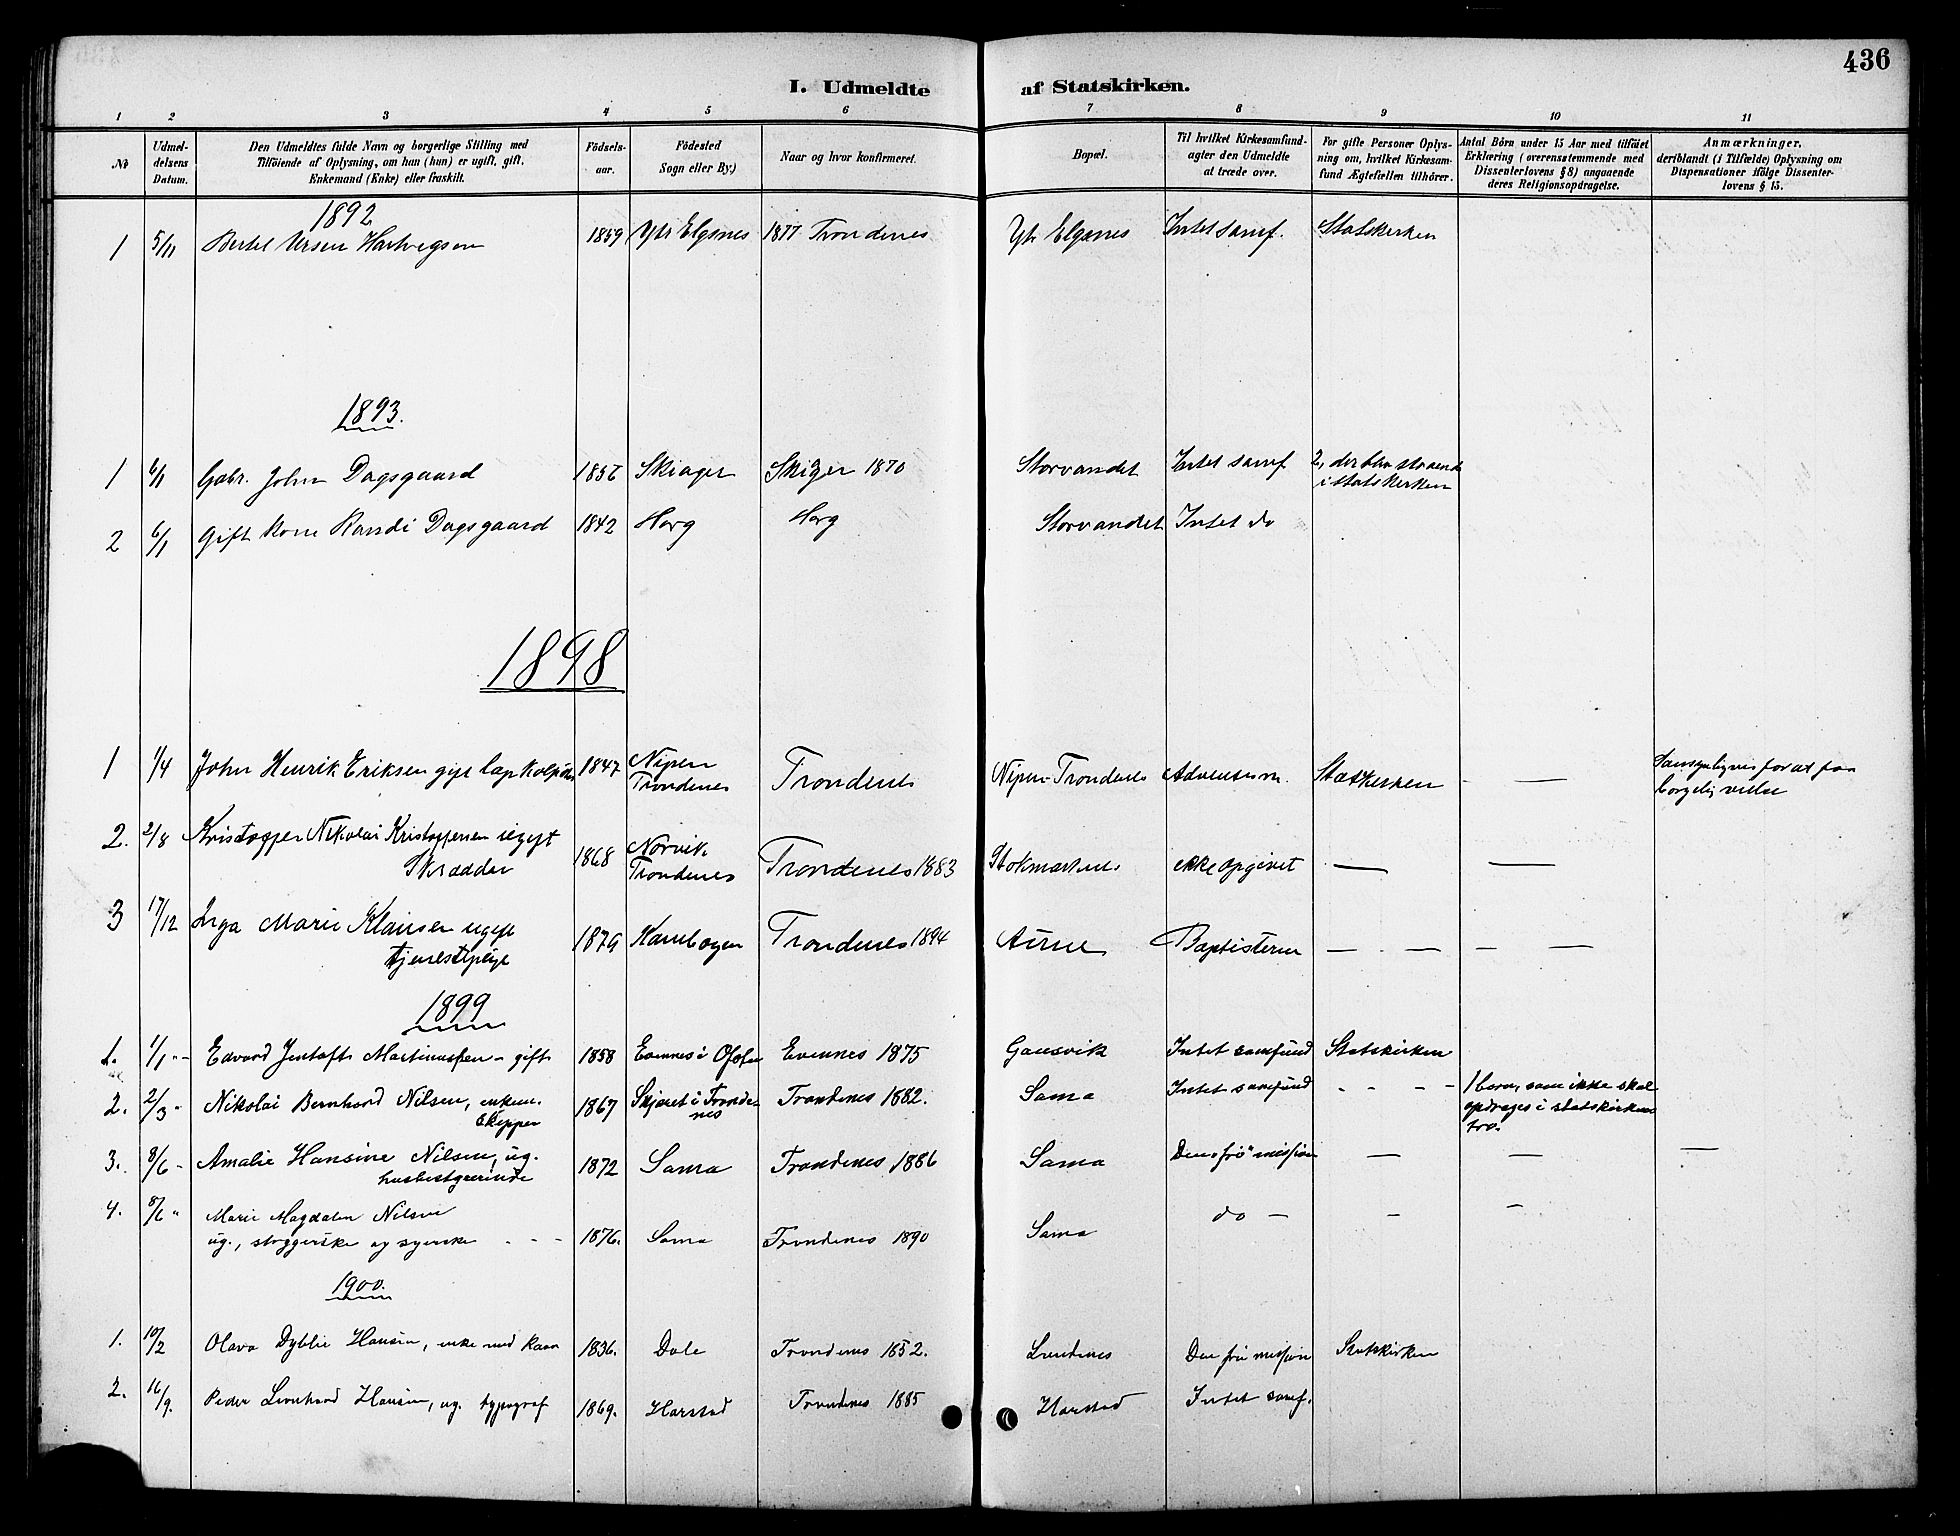 436
I. Udmeldte af Statskirken.
1 2 3 4 5 6 7 8 9 10 11
No
Udmel-
delsens
Datum.
Den Udmeldtes fulde Navn og borgerlige Stilling med
Tilföiende af Oplysning, om han (hun) er ugift, gift,
Enkemand (Enke) eller fraskilt.
Födsels-
aar.
Födested
Sogn eller By.)
Naar og hvor konfirmeret.
Bopæl.
Til hvilket Kirkesamfund-
agter den Udmeldte
at træde over.
For gifte Personer Oplys-
ning om, hvilket Kirkesam-
fund Ægtefællen tilhörer.
Antal Börn under 15 Aar med tilföiet
Erklæring (overensstemmende med
Dissenterlovens § 8) angaaende
deres Religionsopdragelse.
Anmærkninger,
deriblandt (i Tilfælde) Oplysning om
Dispensationer ifölge Dissenter-
lovens § 15.
1892
1 5/11 Bertel Hartvigsen 1859 Ytr Elgsnes 1877 Trondenes Ytr Elgsnes Intet samf. Statskirken
1893.
1 6/1 Gabr. John Dagsgaard Skiager 1870 Storvandet Intet samf 2,
i statskirken
2 6/1 Gift Kone Randi Dagsgaard 1842 Horg Horg Storvandet Intet do
1898
1 1/4 John Henrik Eriksen gift 1847 Nipen
Trondenes Trondenes Nipen-Trondenes Statskirken - —
for at faa
borgelig vielse
2. 2/8 Kristoffer Nikolai Kristoffersen ugift
Skrædder 1868 Norvik
Trondenes Trondenes 1883 Stokmarknes ikke opgivet — —
3 17/12 Inga Marie Klausen ugift
tjenestepige 1879 Kanebogen Trondenes 1894 Baptisterne — . — — —
1899
1. 1/1 - Edvard Jentoft Martinussen - gift 1858 Evennes i Ofoten Evennes 1875 Gausvik Intet samfund Statskirken
2. 2/3 - Nikolai Bernhard Nilsen, enkem.
skipper 1867 Skjæret i Tronde-
nes Trondenes 1882. Sama Intet samfund - - - - 1 barn, som ikke skal
opdrages i statskirkens
tro.
3. 8/6 - Amalie Hansine Nilsen, ug.
husbestyrerinde 1872 Sama Trondenes 1886 Sama Den "fri" mission — — —
4. 8/6 " Marie Magdalen Nilsen
ug., og syerske - - - 1876. Sama Trondenes 1890 Sama do - - -
1900.
1. 10/2 Olava Hansen, 1836. Dale Trondenes 1852. Lundenes Den fri mission Statskirken
2. 16/9. Peder Leonhard Hansen, ug. typograf 1869. Harstad Trondenes 1885 Harstad Intet samf.